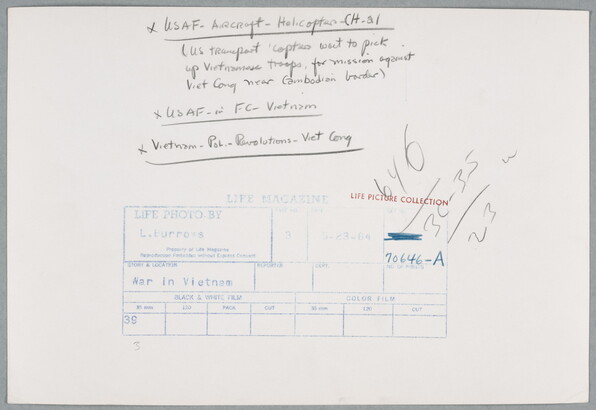 x USAF - Aircraft - Helicopter - CH-21
(US transport 'copters wait to pick
up Vietnamese troops, for mission against
Viet Cong near Cambodian border)
x USAF - in F.C. - Vietnam
x Vietnam - Pol. - Revolutions - Viet Cong
646
36-35
23
LIFE MAGAZINE
LIFE PICTURE COLLECTION
LIFE PHOTO BY
L.Burrows
3
Property of Life Magazine
Reproduction Forbidden without Express Consent
70646-A
STORY & LOCATION
REPORTER
DEPT.
War in Vietnam
BLACK & WHITE FILM
COLOR FILM
35 mm
120
PACK
CUT
35 mm
120
CUT
39
3